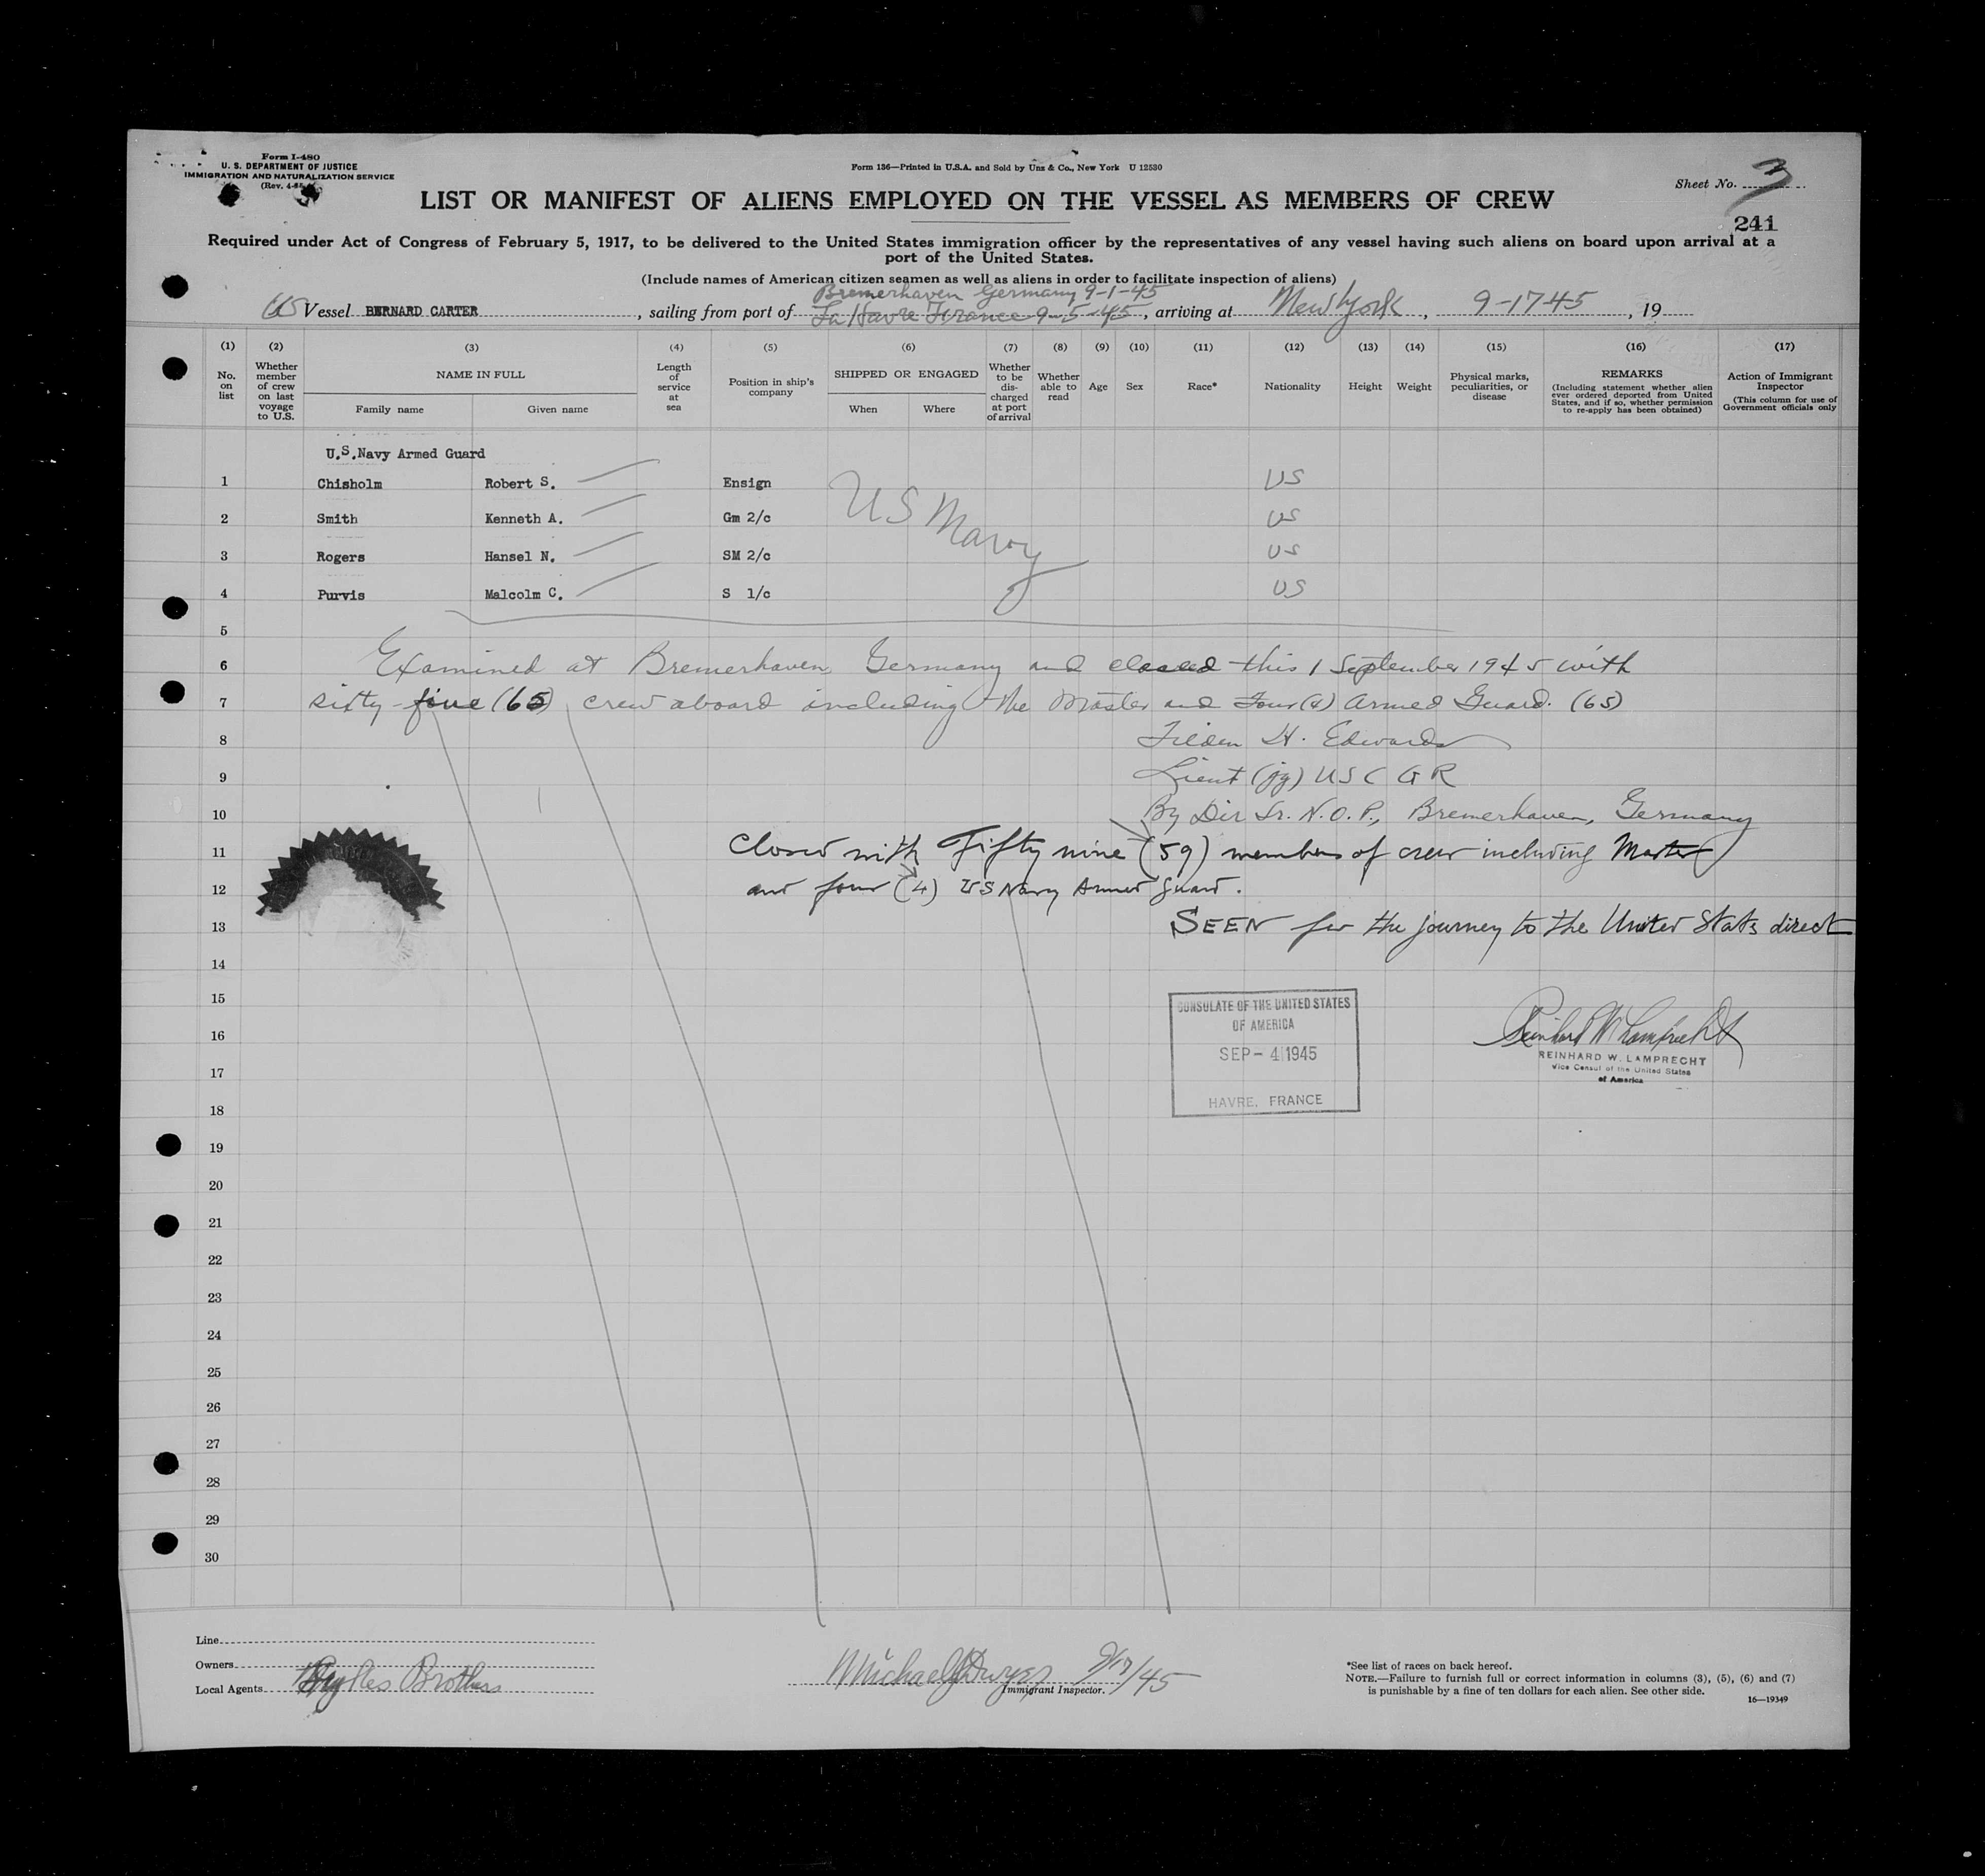 Form I-480
U. S. DEPARTMENT OF JUSTICE
IMMIGRATION AND NATURALIZATION SERVICE
(Rev. 4-
Form 136—Printed in U.S.A. and Sold by Unz & Co., New York U 12530
Sheet No. 3
LIST OR MANIFEST OF ALIENS EMPLOYED ON THE VESSEL AS MEMBERS OF CREW
241
Required under Act of Congress of February 5, 1917, to be delivered to the United States immigration officer by the representatives of any vessel having such aliens on board upon arrival at a
port of the United States.
(Include names of American citizen seamen as well as aliens in order to facilitate inspection of aliens)
Bremerhaven Germany 9-1-45
US Vessel BERNARD CARTER, sailing from port of La Havre France 9-5-45, arriving at New York, 9-17-45, 19
(1) (2) (3) (4) (5) (6) (7) (8) (9) (10) (11) (12) (13) (14) (15) (16) (17)
No. on list
Whether member of crew on last voyage to U.S.
NAME IN FULL
Family name
Given name
Length of service at sea
Position in ship's company
SHIPPED OR ENGAGED
When
Where
Whether to be discharged at port of arrival
Whether able to read
Age
Sex
Race*
Nationality
Height
Weight
Physical marks, peculiarities, or disease
REMARKS
(Including statement whether alien ever ordered deported from United States, and if so, whether permission to re-apply has been obtained)
Action of Immigrant Inspector
(This column for use of Government officials only
U.S.Navy Armed Guard
1 Chisholm Robert S. Ensign US
2 Smith Kenneth A. Gm 2/c US
US Navy
3 Rogers Hansel N. SM 2/c US
4 Purvis Malcolm C. S 1/c US
5
6 Examined at Bremerhaven, Germany and closed this 1 September 1945 with
7 sixty-five (65) crew aboard including the Master and Four (4) Armed Guard. (65)
8 Tilden H. Edwards
9 Lieut (jg) USCGR
10 By Dir Sr. N.O.P., Bremerhaven, Germany
11 Closed with Fifty nine (59) members of crew including Master
12 and four (4) US Navy Armed Guard.
13 SEEN for the journey to the United States direct
14
15
16
17
18
19
20
21
22
23
24
25
26
27
28
29
30
CONSULATE OF THE UNITED STATES
OF AMERICA
SEP - 4 1945
HAVRE, FRANCE
Reinhard W Lamprecht
REINHARD W. LAMPRECHT
Vice Consul of the United States
of America
Line
Owners
Local Agents Brothers
Michael J Dwyer 9/17/45
Immigrant Inspector.
*See list of races on back hereof.
NOTE.—Failure to furnish full or correct information in columns (3), (5), (6) and (7)
is punishable by a fine of ten dollars for each alien. See other side.
16—19349